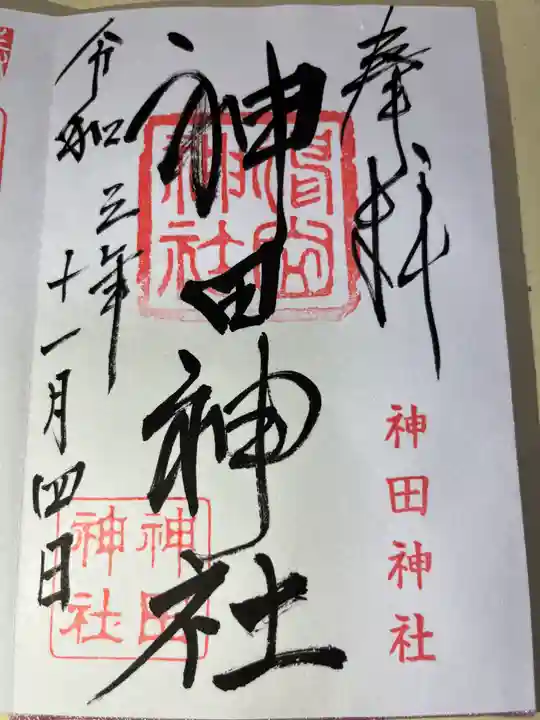 奉拝
神田神社
神田神社
令和三年
十一月四日
神田
神社
神社